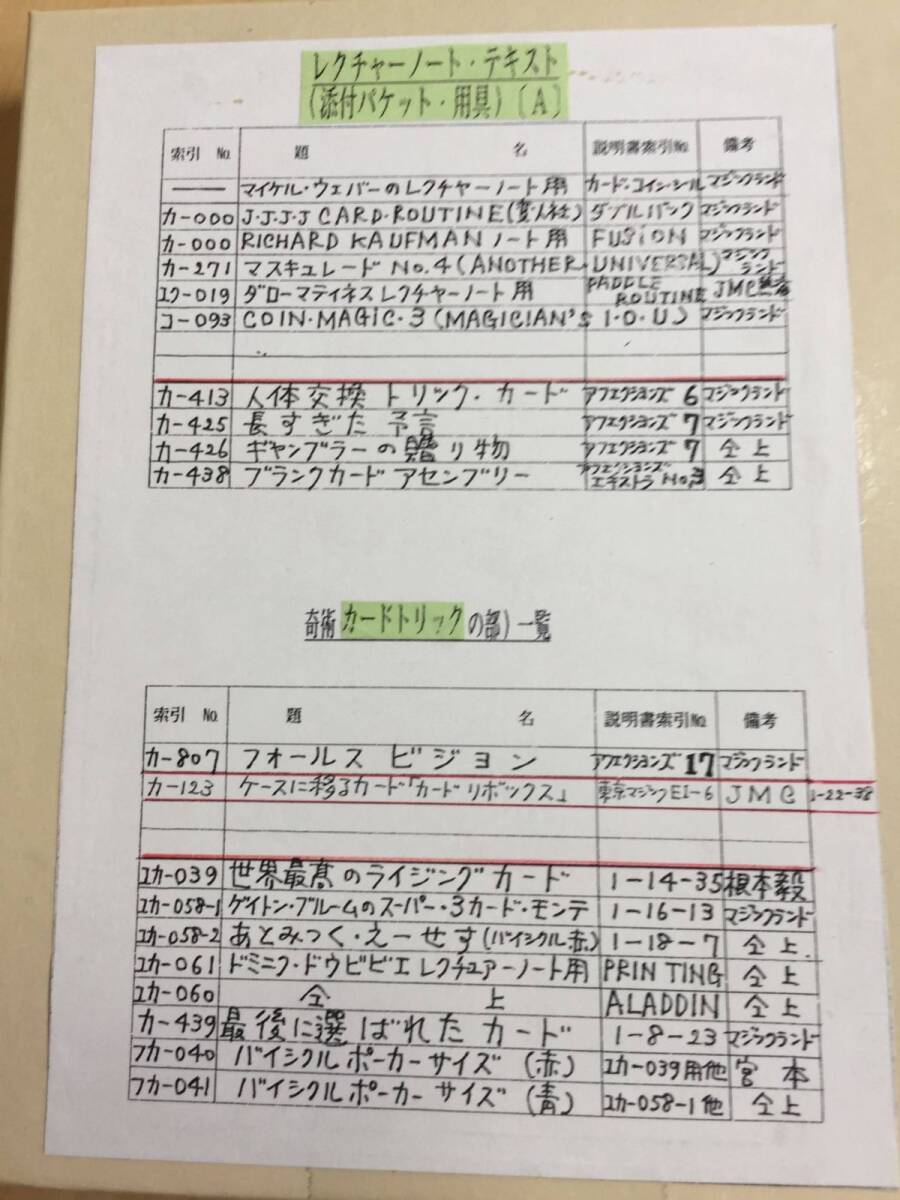 レクチャーノート・テキスト
(添付パケット・用具)〔A〕
索引 No. 題 名 説明書索引No. 備考
—— マイケル・ウェバーのレクチャーノート用 カード・コイン・シル マジックランド
カ-000 J・J・J・J CARD・ROUTINE(変人社) ダブルバック マジックランド
カ-000 RICHARD KAUFMAN ノート用 FUSiON マジックランド
カ-271 マスキュレード No.4(ANOTHER・UNIVERSAL) マジックランド
ユク-019 ダローマティネスレクチャーノート用 PADDLE ROUTINE JMC
コ-093 COIN・MAGIC・3(MAGICIAN'S I・O・U) マジックランド
カ-413 人体交換トリック・カード アフェクションズ 6 マジックランド
カ-425 長すぎた予言 アフェクションズ 7 マジックランド
カ-426 ギャンブラーの贈り物 アフェクションズ 7 仝上
カ-438 ブランクカードアセンブリー アフェクションズエキストラ No.3 仝上
奇術カードトリックの部)一覧
索引 No. 題 名 説明書索引No. 備考
カ-807 フォールス ビジョン アフェクションズ 17 マジックランド
カ-123 ケースに移るカード「カードリボックス」 東京マジックEI-6 JMC 1-22-38
ユカ-039 世界最高のライジングカード 1-14-35 根本毅
ユカ-058-1 ゲイトン・ブルームのスーパー・3カード・モンテ 1-16-13 マジックランド
ユカ-058-2 あとみっく・えーせす(バイシクル赤) 1-18-7 仝上
ユカ-061 ドミニク・ドウビビエ レクチュアーノート用 PRINTING 仝上
ユカ-060 仝 上 ALADDIN 仝上
カ-439 最後に選ばれたカード 1-8-23 マジックランド
フカ-040 バイシクルポーカーサイズ(赤) ユカ-039用他 宮本
フカ-041 バイシクルポーカーサイズ(青) ユカ-058-1他 仝上